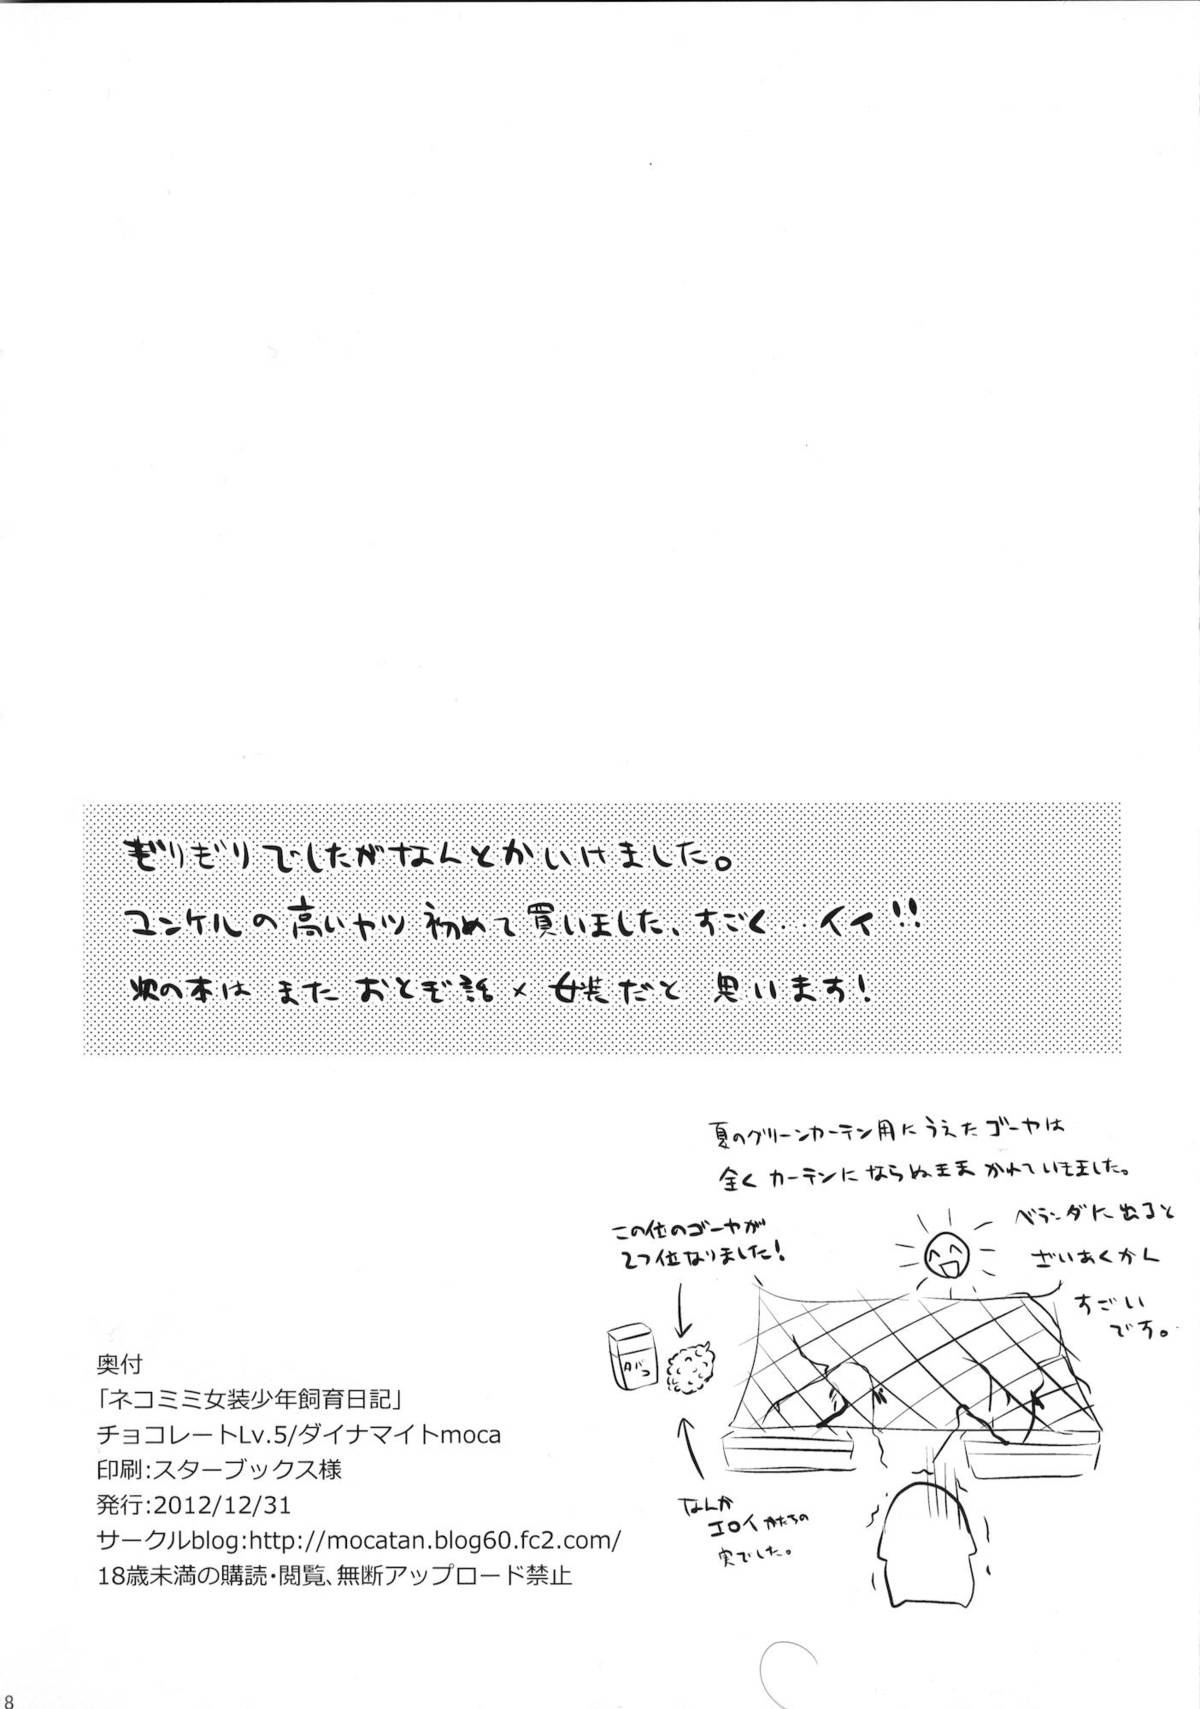 ぎりぎりでしたがなんとかいけました。
ユンケルの高いヤツ初めて買いました、すごく...イイ!!
次の本はまたおとぎ話×女装だと思います!
夏のグリーンカーテン用にうえたゴーヤは
全くカーテンにならぬままかれていきました。
ベランダに出ると
ざいあくかん
すごい
です。
この位のゴーヤが
2つ位なりました!
タバコ
なんか
エロイかたちの
実でした。
奥付
「ネコミミ女装少年飼育日記」
チョコレートLv.5/ダイナマイトmoca
印刷:スターブックス様
発行:2012/12/31
サークルblog:http://mocatan.blog60.fc2.com/
18歳未満の購読・閲覧、無断アップロード禁止
8